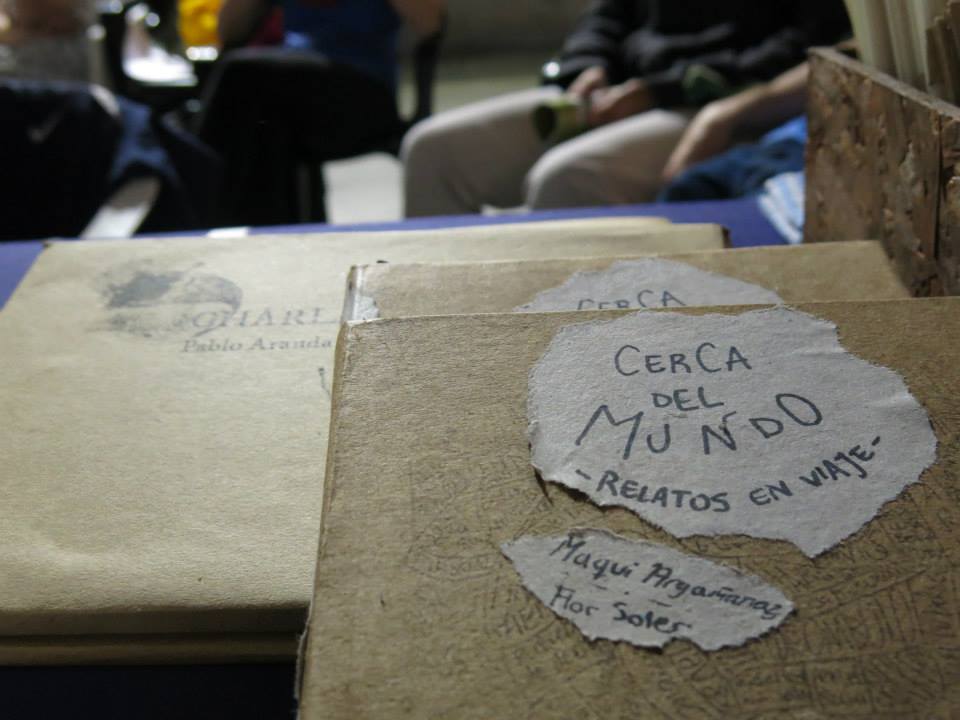 CHARL
Pablo Aranda
CERCA
CERCA
DEL
MUNDO
-RELATOS EN VIAJE-
Maqui Argañaraz
Flor Soler